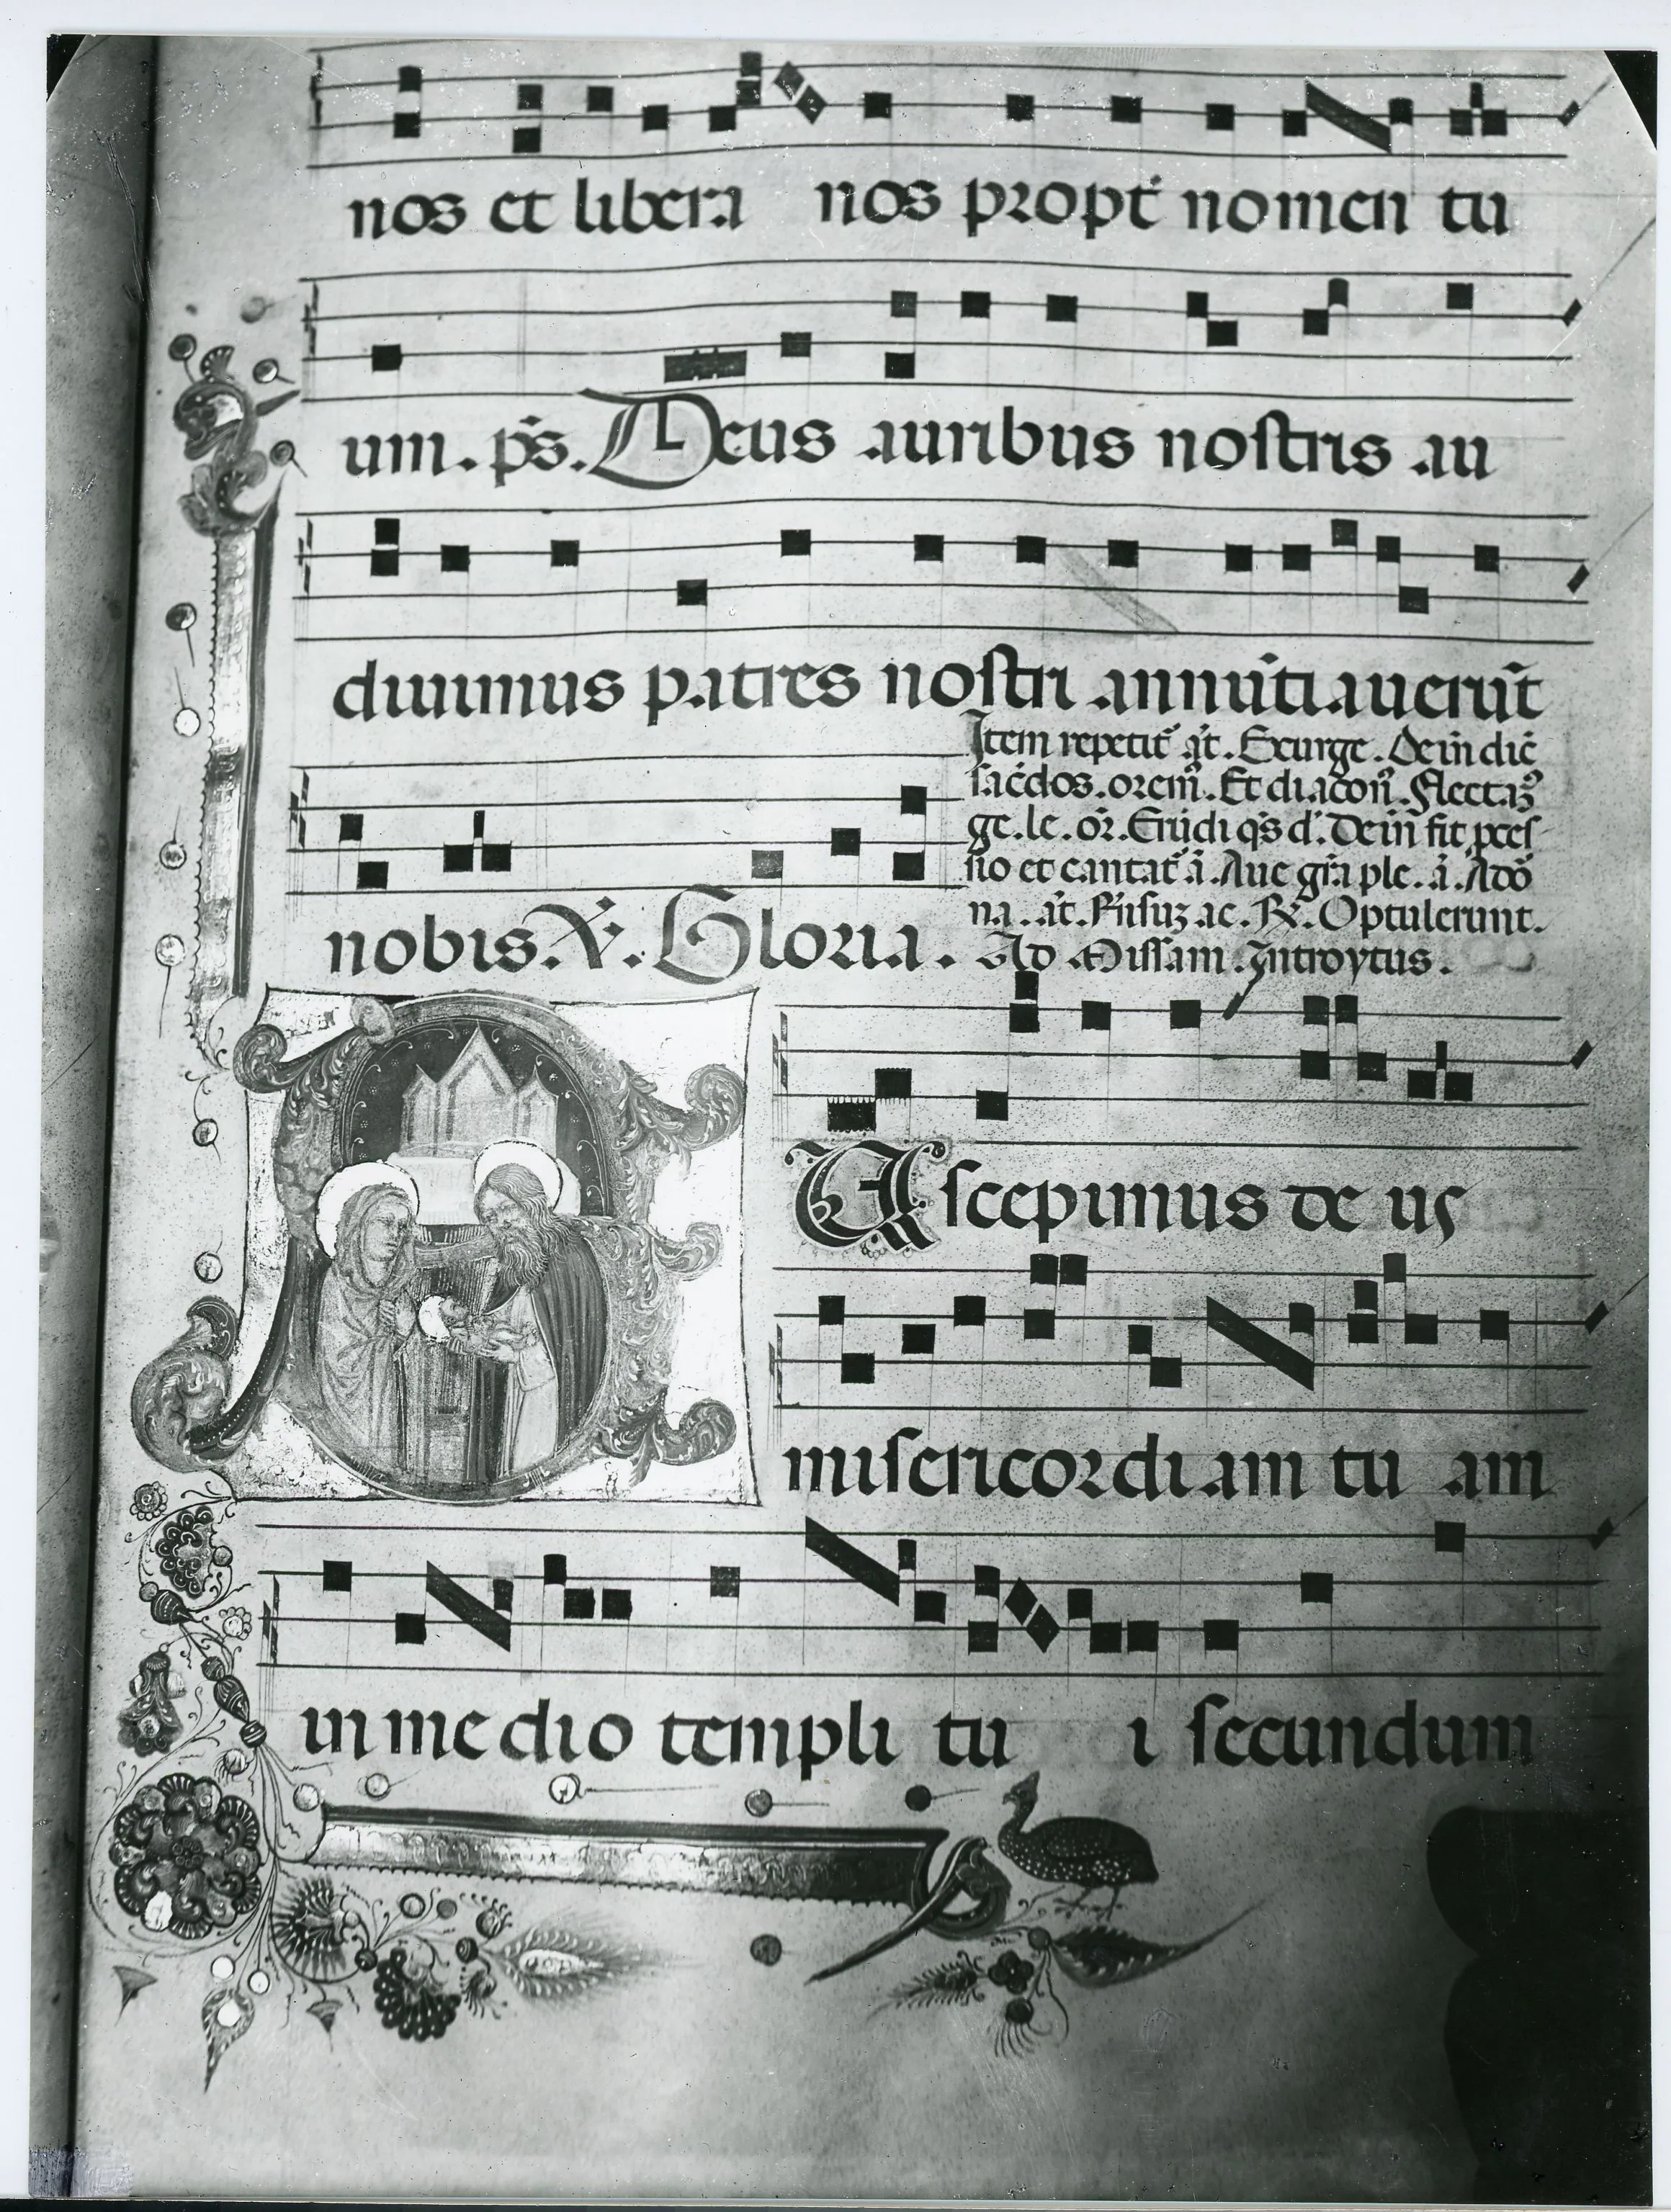 nos et libera nos propt̄ nomen tu
um. ps̄. Deus auribus nostris au
diuimus patres nostri annūtiauerūt
Item repetit̄ āt. Exurge. Dein dic̄
sac̄dos. orem̄. Et diacon̄. Flectaꝫ
ge. le. or̄. Erudi q̄s d'. Dein fit pces
sio et cantat̄ ā. Aue gr̄a ple. ā. Ado
na. āt. R̄nsuꝫ ac. ℟. Optulerunt.
nobis. ℣. Gloria. Ad Missam. Introytus.
Uscepimus deus
misericordiam tu am
in medio templi tu i secundum